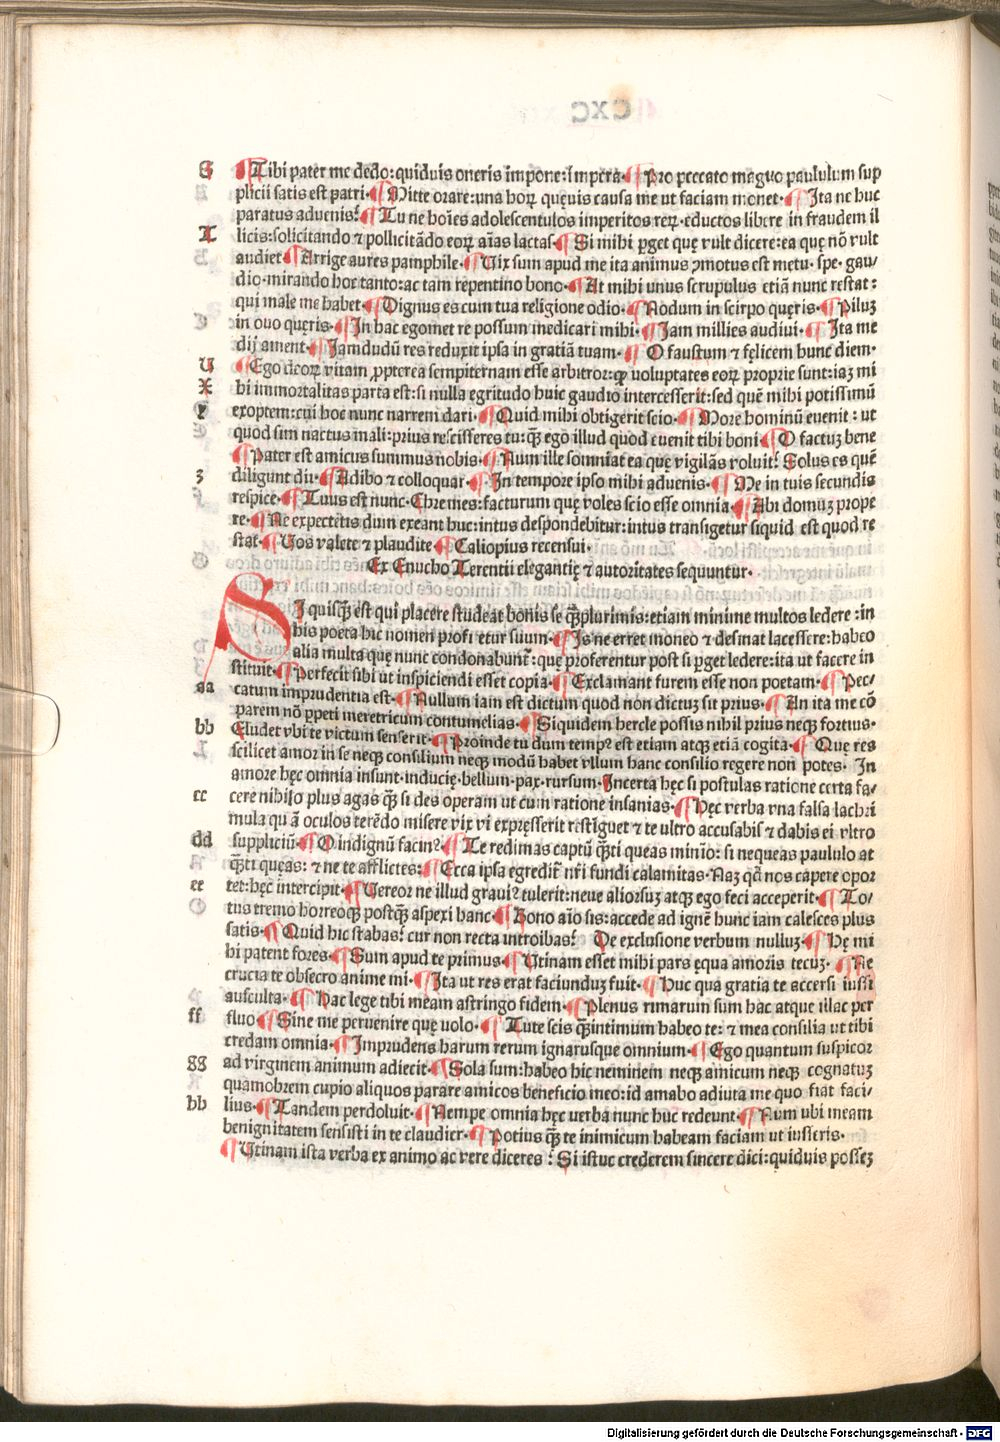 S ¶Tibi pater me dedo:quiduis oneris impone:impera·¶Pro peccato magno paululum sup
plicii satis est patri·¶Mitte orare:una horꝝ quęuis causa me ut faciam monet·¶Ita ne huc
paratus aduenis?¶Tu ne hoīes adolescentulos imperitos reꝝ·eductos libere in fraudem il
T licis:solicitando ⁊ pollicitādo eoꝝ aīas lactas·¶Si mihi ꝑget quę vult dicere:ea quę nō vult
audiet·¶Arrige aures pamphile·¶Vix sum apud me ita animus ꝯmotus est metu·spe·gau/
dio·mirando hoc tanto:ac tam repentino bono·¶At mihi unus scrupulus etiā nunc restat:
qui male me habet·¶Dignus es cum tua religione odio·¶Nodum in scirpo quęris·¶Piluz
in ouo quęris·¶In hac egomet re possum medicari mihi·¶Jam millies audiui·¶Ita me
dij ament·¶Jamdudū res reduxit ipsa in gratiā tuam·¶O faustum ⁊ fęlicem hunc diem·
U ¶Ego deoꝝ vitam ꝓpterea sempiternam esse arbitror:qꝫ voluptates eoꝝ proprie sunt:iaz mi
X hi immortalitas parta est:si nulla egritudo huic gaudio intercesserit:sed quē mihi potissimū
y exoptem:cui hoc nunc narrem dari·¶Quid mihi obtigerit scio·¶More hominū euenit:ut
quod sim nactus mali:prius rescisseres tu:qꝫ ego illud quod euenit tibi boni·¶O factuz bene
¶Pater est amicus summus nobis·¶Num ille somniat ea que vigilās voluit? Solus es quē
z diligunt dii·¶Adibo ⁊ colloquar·¶In tempore ipso mihi aduenis·¶Me in tuis secundis
respice·¶Tuus est nunc Chremes:facturum quę voles scio esse omnia·¶Abi domuz prope
re·¶Ne expectetis dum exeant huc:intus despondebitur:intus transigetur siquid est quod re
stat·¶Vos valete ⁊ plaudite·¶Caliopius recensui·
Ex Enucho Terentii elegantię ⁊ autoritates sequuntur·
SI quisqꝫ est qui placere studeat bonis se qꝫplurimis:etiam minime multos ledere:in
his poeta hic nomen profitetur suum·¶Is ne erret moneo ⁊ desinat lacessere:habeo
alia multa quę nunc condonabunť:quę proferentur post si ꝑget ledere:ita ut facere in
stituit·¶Perfecit sibi ut inspiciendi esset copia·¶Exclamant furem esse non poetam·¶Pec/
aa catum imprudentia est·¶Nullum iam est dictum quod non dictuz sit prius·¶An ita me cō
parem nō ꝑpeti meretricum contumelias·¶Siquidem hercle possis nihil prius neqꝫ fortius·
bb Eludet vbi te victum senserit·¶Proinde tu dum tempꝰ est etiam atqꝫ etiā cogita·¶Quę res
scilicet amor in se neqꝫ consilium neqꝫ modū habet vllum hanc consilio regere non potes· In
amore hęc omnia insunt·inducię·bellum·pax·rursum·Incerta hęc si postulas ratione certa fa/
cc cere nihilo plus agas qꝫ si des operam ut cum ratione insanias·¶Hęc verba vna falsa lachri
mula quā oculos terēdo misere vix vi expręsserit restiguet ⁊ te ultro accusabis ⁊ dabis ei vltro
dd suppliciū·¶O indignū facinꝰ·¶Te redimas captū qꝫti queas minīo:si nequeas paululo at
qꝫti quęas:⁊ ne te afflictes:¶Ecca ipsa egredit̄ nr̄i fundi calamitas·Naz qd̄ nos capere opor
ee tet:hęc intercipit·¶Vereor ne illud grauiꝰ tulerit:neue aliorsuz atqꝫ ego feci acceperit·¶To/
tus tremo horreoqꝫ postqꝫ aspexi hanc·¶Bono aīo sis:accede ad ignē hunc iam calesces plus
satis·¶Quid hic stabas? cur non recta introibas? De exclusione verbum nulluz·¶Hę mi
hi patent fores·¶Sum apud te primus·¶Vtinam esset mihi pars ęqua amoris tecuz·¶Ne
crucia te obsecro anime mi·¶Ita ut res erat faciunduz fuit·¶Huc qua gratia te accersi iussi
ausculta·¶Hac lege tibi meam astringo fidem·¶Plenus rimarum sum hac atque illac per
ff fluo·¶Sine me peruenire quę uolo·¶Tute scis qꝫintimum habeo te:⁊ mea consilia ut tibi
credam omnia·¶Imprudens harum rerum ignarusque omnium·¶Ego quantum suspicor
gg ad virginem animum adiecit·¶Sola sum:habeo hic neminem neqꝫ amicum neqꝫ cognatuz
quamobrem cupio aliquos parare amicos beneficio meo:id amabo adiuta me quo fiat faci/
hh lius·¶Tandem perdoluit·¶Nempe omnia hęc verba nunc huc redeunt·¶Num ubi meam
benignitatem sensisti in te claudier·¶Potius qꝫ te inimicum habeam faciam ut iusseris·
¶Vtinam ista verba ex animo ac vere diceres:Si istuc crederem sincere dici:quiduis possez
Digitalisierung gefördert durch die Deutsche Forschungsgemeinschaft - DFG